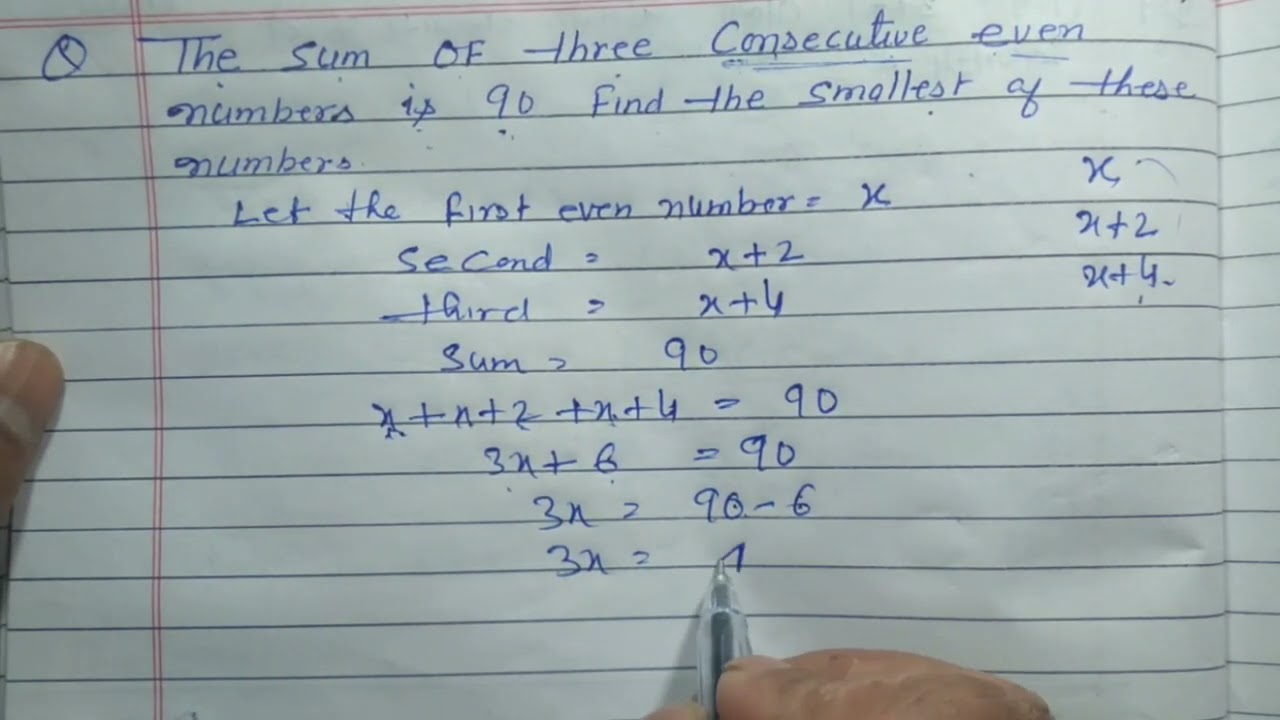 Q The sum OF three Consecutive even
numbers is 90 Find the smallest of these
numbers.
Let the first even number = x
Second = x+2
third = x+4
Sum = 90
x+x+2+x+4 = 90
3x+6 = 90
3x = 90-6
3x =
x,
x+2
x+4.